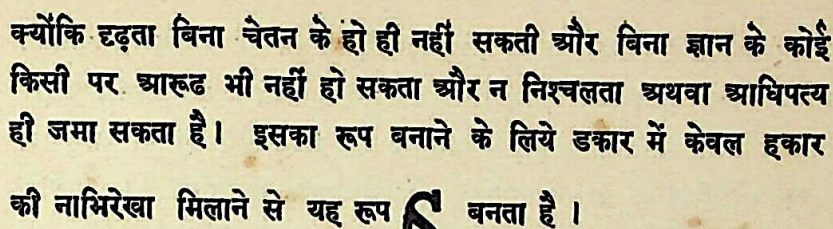 क्योंकि दृढ़ता बिना चेतन के हो ही नहीं सकती और बिना ज्ञान के कोई
किसी पर आरूढ भी नहीं हो सकता और न निश्चलता अथवा आधिपत्य
ही जमा सकता है। इसका रूप बनाने के लिये डकार में केवल हकार
की नाभिरेखा मिलाने से यह रूप बनता है।